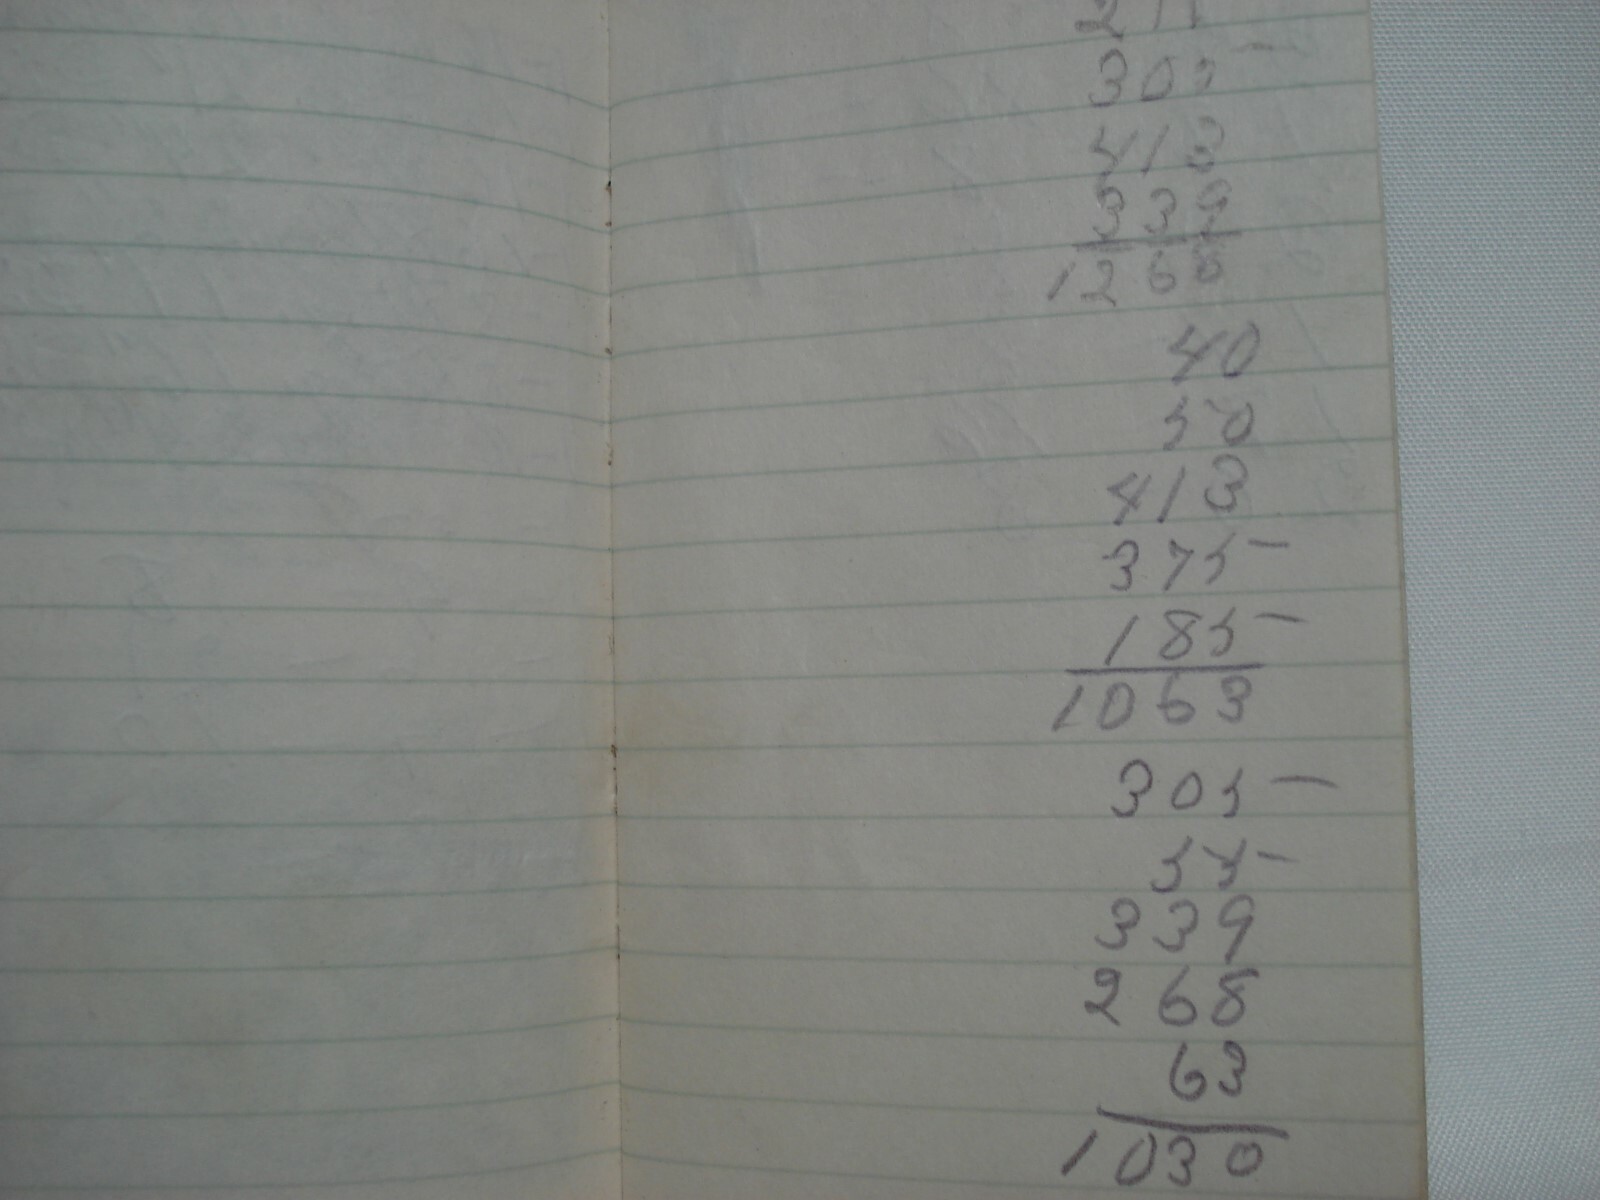 211
305
413
339
1268
40
50
413
375
185
1063
305
55
339
268
63
1030